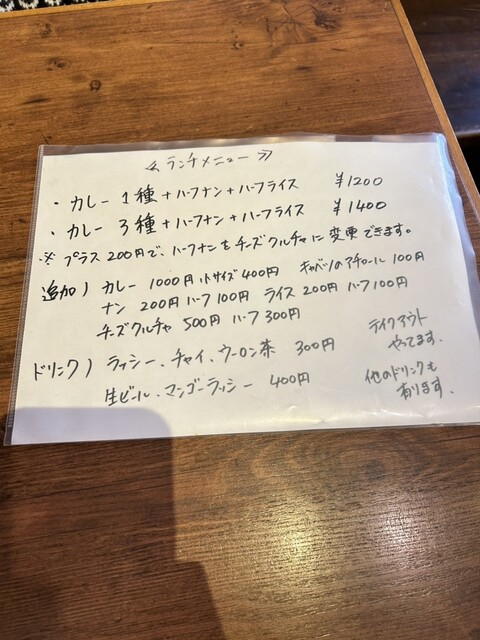 ≪ ランチメニュー ≫
・カレー 1種 + ハーフナン + ハーフライス ¥1200
・カレー 3種 + ハーフナン + ハーフライス ¥1400
※ プラス 200円で、ハーフナンをチーズクルチャに変更できます。
追加) カレー 1000円 小サイズ 400円 キャベツのアチャール 100円
ナン 200円 ハーフ 100円 ライス 200円 ハーフ 100円
チーズクルチャ 500円 ハーフ 300円
ドリンク) ラッシー、チャイ、ウーロン茶 300円
生ビール、マンゴーラッシー 400円
テイクアウト
やってます.
他のドリンクも
有ります.